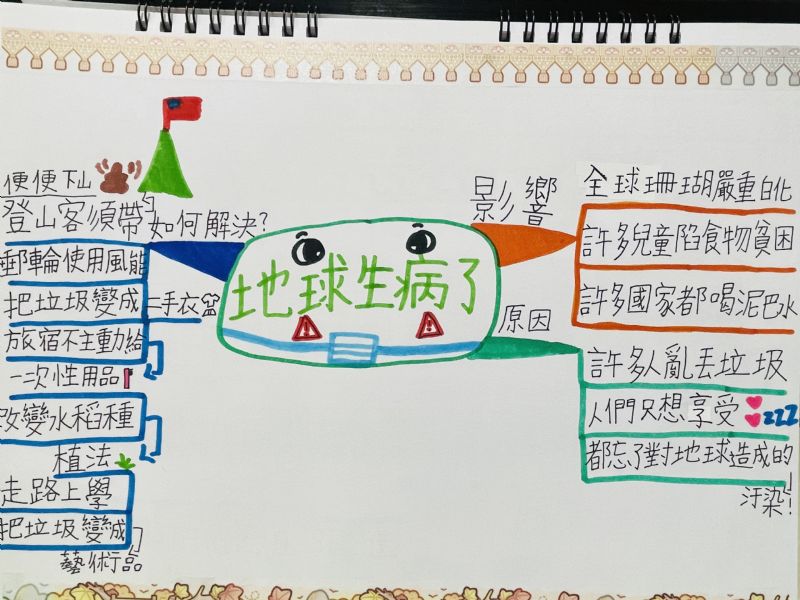 地球生病了
影響
全球珊瑚嚴重白化
許多兒童陷食物貧困
許多國家都喝泥巴水
原因
許多人亂丟垃圾
人們只想享受
zzZ
都忘了對地球造成的
汙染!
如何解決?
登山客須帶
便便下山
郵輪使用風能
把垃圾變成二手衣
旅宿不主動給
一次性用品
改變水稻種
植法
走路上學
把垃圾變成
藝術品